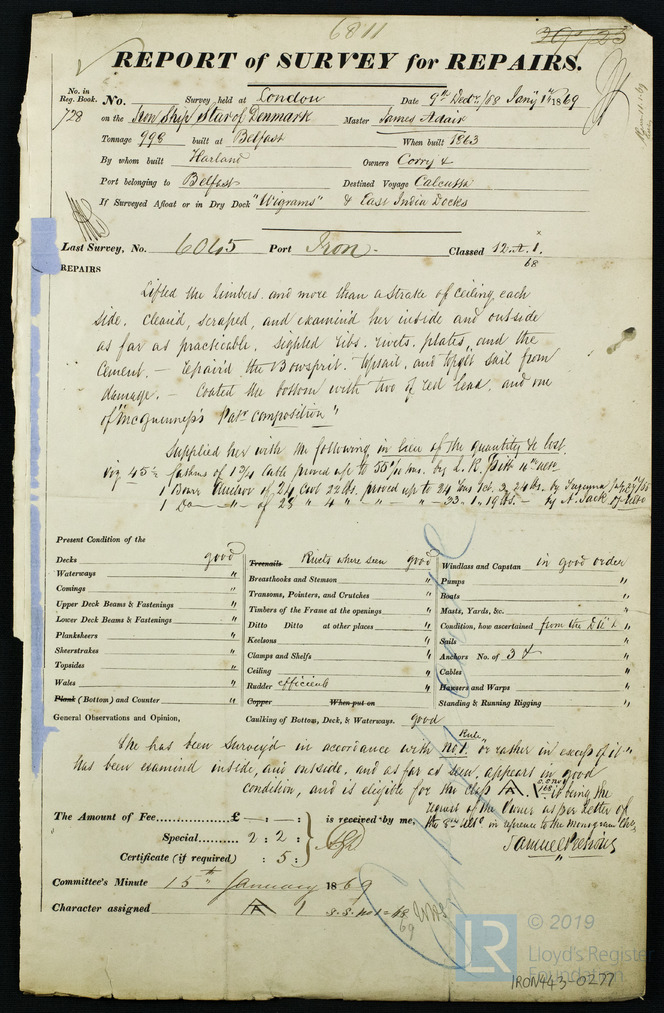 6811
REPORT of SURVEY for REPAIRS.
No. in
Reg. Book.
728
No. Survey held at London Date 9th Decr/68 Jany 1869
on the Iron Ship Star of Denmark Master James Adair
Tonnage 998 built at Belfast When built 1863
By whom built Harland Owners Corry &
Port belonging to Belfast Destined Voyage Calcutta
If Surveyed Afloat or in Dry Dock "Wigrams" & East India Docks
Last Survey, No. 6045 Port Iron Classed 12 A.1.
68
REPAIRS
Lifted the limbers. and more than a strake of ceiling, each
side. cleand, scraped, and examind her inside and outside
as far as practicable. Sighted ribs. rivets. plates and the
cement. – repaird the Bowsprit. Topsail, and topgt sail from
damage. – Coated the bottom with two of red lead, and one
of "McGuinness's Patt composition"
Supplied her with the following in lieu of the quantity &c lost.
viz 45 fathms of 1 3/4 cable proved up to 55 tons. by L. R.
1 Bower Anchor of 24 cwt 22 lbs. proved up to 24 tons
1 Do " of 23 " 4 " " 23. 1. 19 lbs. – by A. Jack
Present Condition of the
Decks good
Waterways "
Comings "
Upper Deck Beams & Fastenings "
Lower Deck Beams & Fastenings "
Planksheers "
Sheerstrakes "
Topsides "
Wales "
Plank (Bottom) and Counter "
Treenails Rivets where seen good
Breasthooks and Stemson "
Transoms, Pointers, and Crutches "
Timbers of the Frame at the openings "
Ditto Ditto at other places "
Keelsons "
Clamps and Shelfs "
Ceiling "
Rudder efficient "
Copper When put on
Windlass and Capstan in good order
Pumps "
Boats "
Masts, Yards, &c. "
Condition, how ascertained from the Dk &c "
Sails "
Anchors No. of 3 & "
Cables "
Hawsers and Warps "
Standing & Running Rigging "
General Observations and Opinion, Caulking of Bottom, Deck, & Waterways. good
Rule
She has been Survey'd in accordance with No 1. or rather in excess of it"
has been examind inside, and outside, and as far as seen, appears in good
condition, and is eligible for the class A. 1. it being the
request of the Owner as per Letter of
the 8th in refrence to the monogram
Samuel
The Amount of Fee £ — : — : is received by me,
Special 2 : 2 :
Certificate (if required) : 5 :
Committee's Minute 15th January 1869
Character assigned A 1 S.S. No 1-68
69
© 2019
LR
Lloyd's Register
Foundation
IRON443-0277